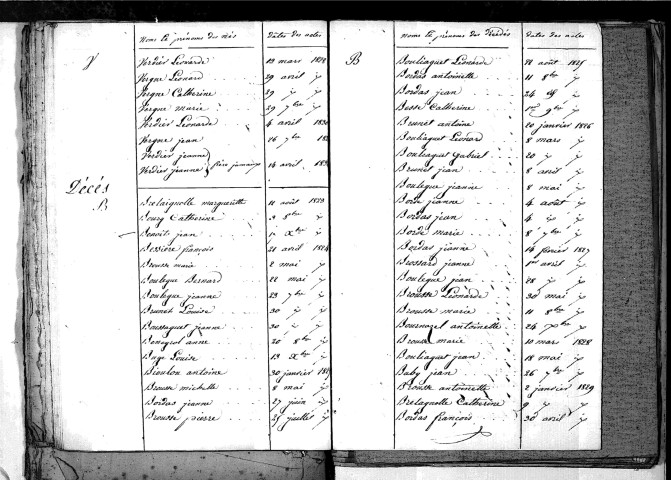 Noms & prénoms des nés dates des actes
V Verdier Léonarde 19 mars 1828
Vergne Léonard 29 avril
Vergne Catherine 29
Vergne marie 29 7bre
Verdier Léonarde 4 avril 1830
Vergne jean 16 7bre
Verdier jeanne
Verdier jeanne 14 avril
Décés
B
Brelaiguolle margueritte 11 août 1823
Bourg Catherine 9 8bre
Benoit jean 1 Xbre
Bessiere françois 21 avril 1824
Brousse marie 2 mai
Boulegue Bernard 22 mai
Boulegue jeanne 23 7bre
Brunet Louise 30
Boussaguet jeanne 30
Bonegrol anne 20 8bre
Buge Louise 19 Xbre
Bioulon antoine 30 janvier
Brousse michelle 8 mai
Bordas jeanne 27 juin
Brousse pierre 25 juillet
Noms & prénoms des Décédés dates des actes
B Bouliaguet Léonarde 18 août 1825
Bordas antoinette 11 8bre
Bordas jean 24
Besse Catherine 1er 9bre
Brunet antoine 20 janvier 1826
Bouliaguet Léonard 8 mars
Bouliaguet Gabriel 20
Brunet jean 8 avril
Boulegue jeanne 8 mai
Borde jeanne 4 août
Bordas jean 4
Borde marie 8 7bre
Bordas jeanne 14 février 1827
Brossard jeanne 1er avril
Boulegue jean 28
Brousse Léonarde 30 mai
Brousse marie 11 8bre
Bournazel antoinette 24 Xbre
Brousse marie 10 mars 1828
Bouliaguet jean 18 mai
Buby jean 26 7bre
Brousse antoinette 2 janvier 1829
Brelaguolle Catherine 9
Bordas françois 30 avril